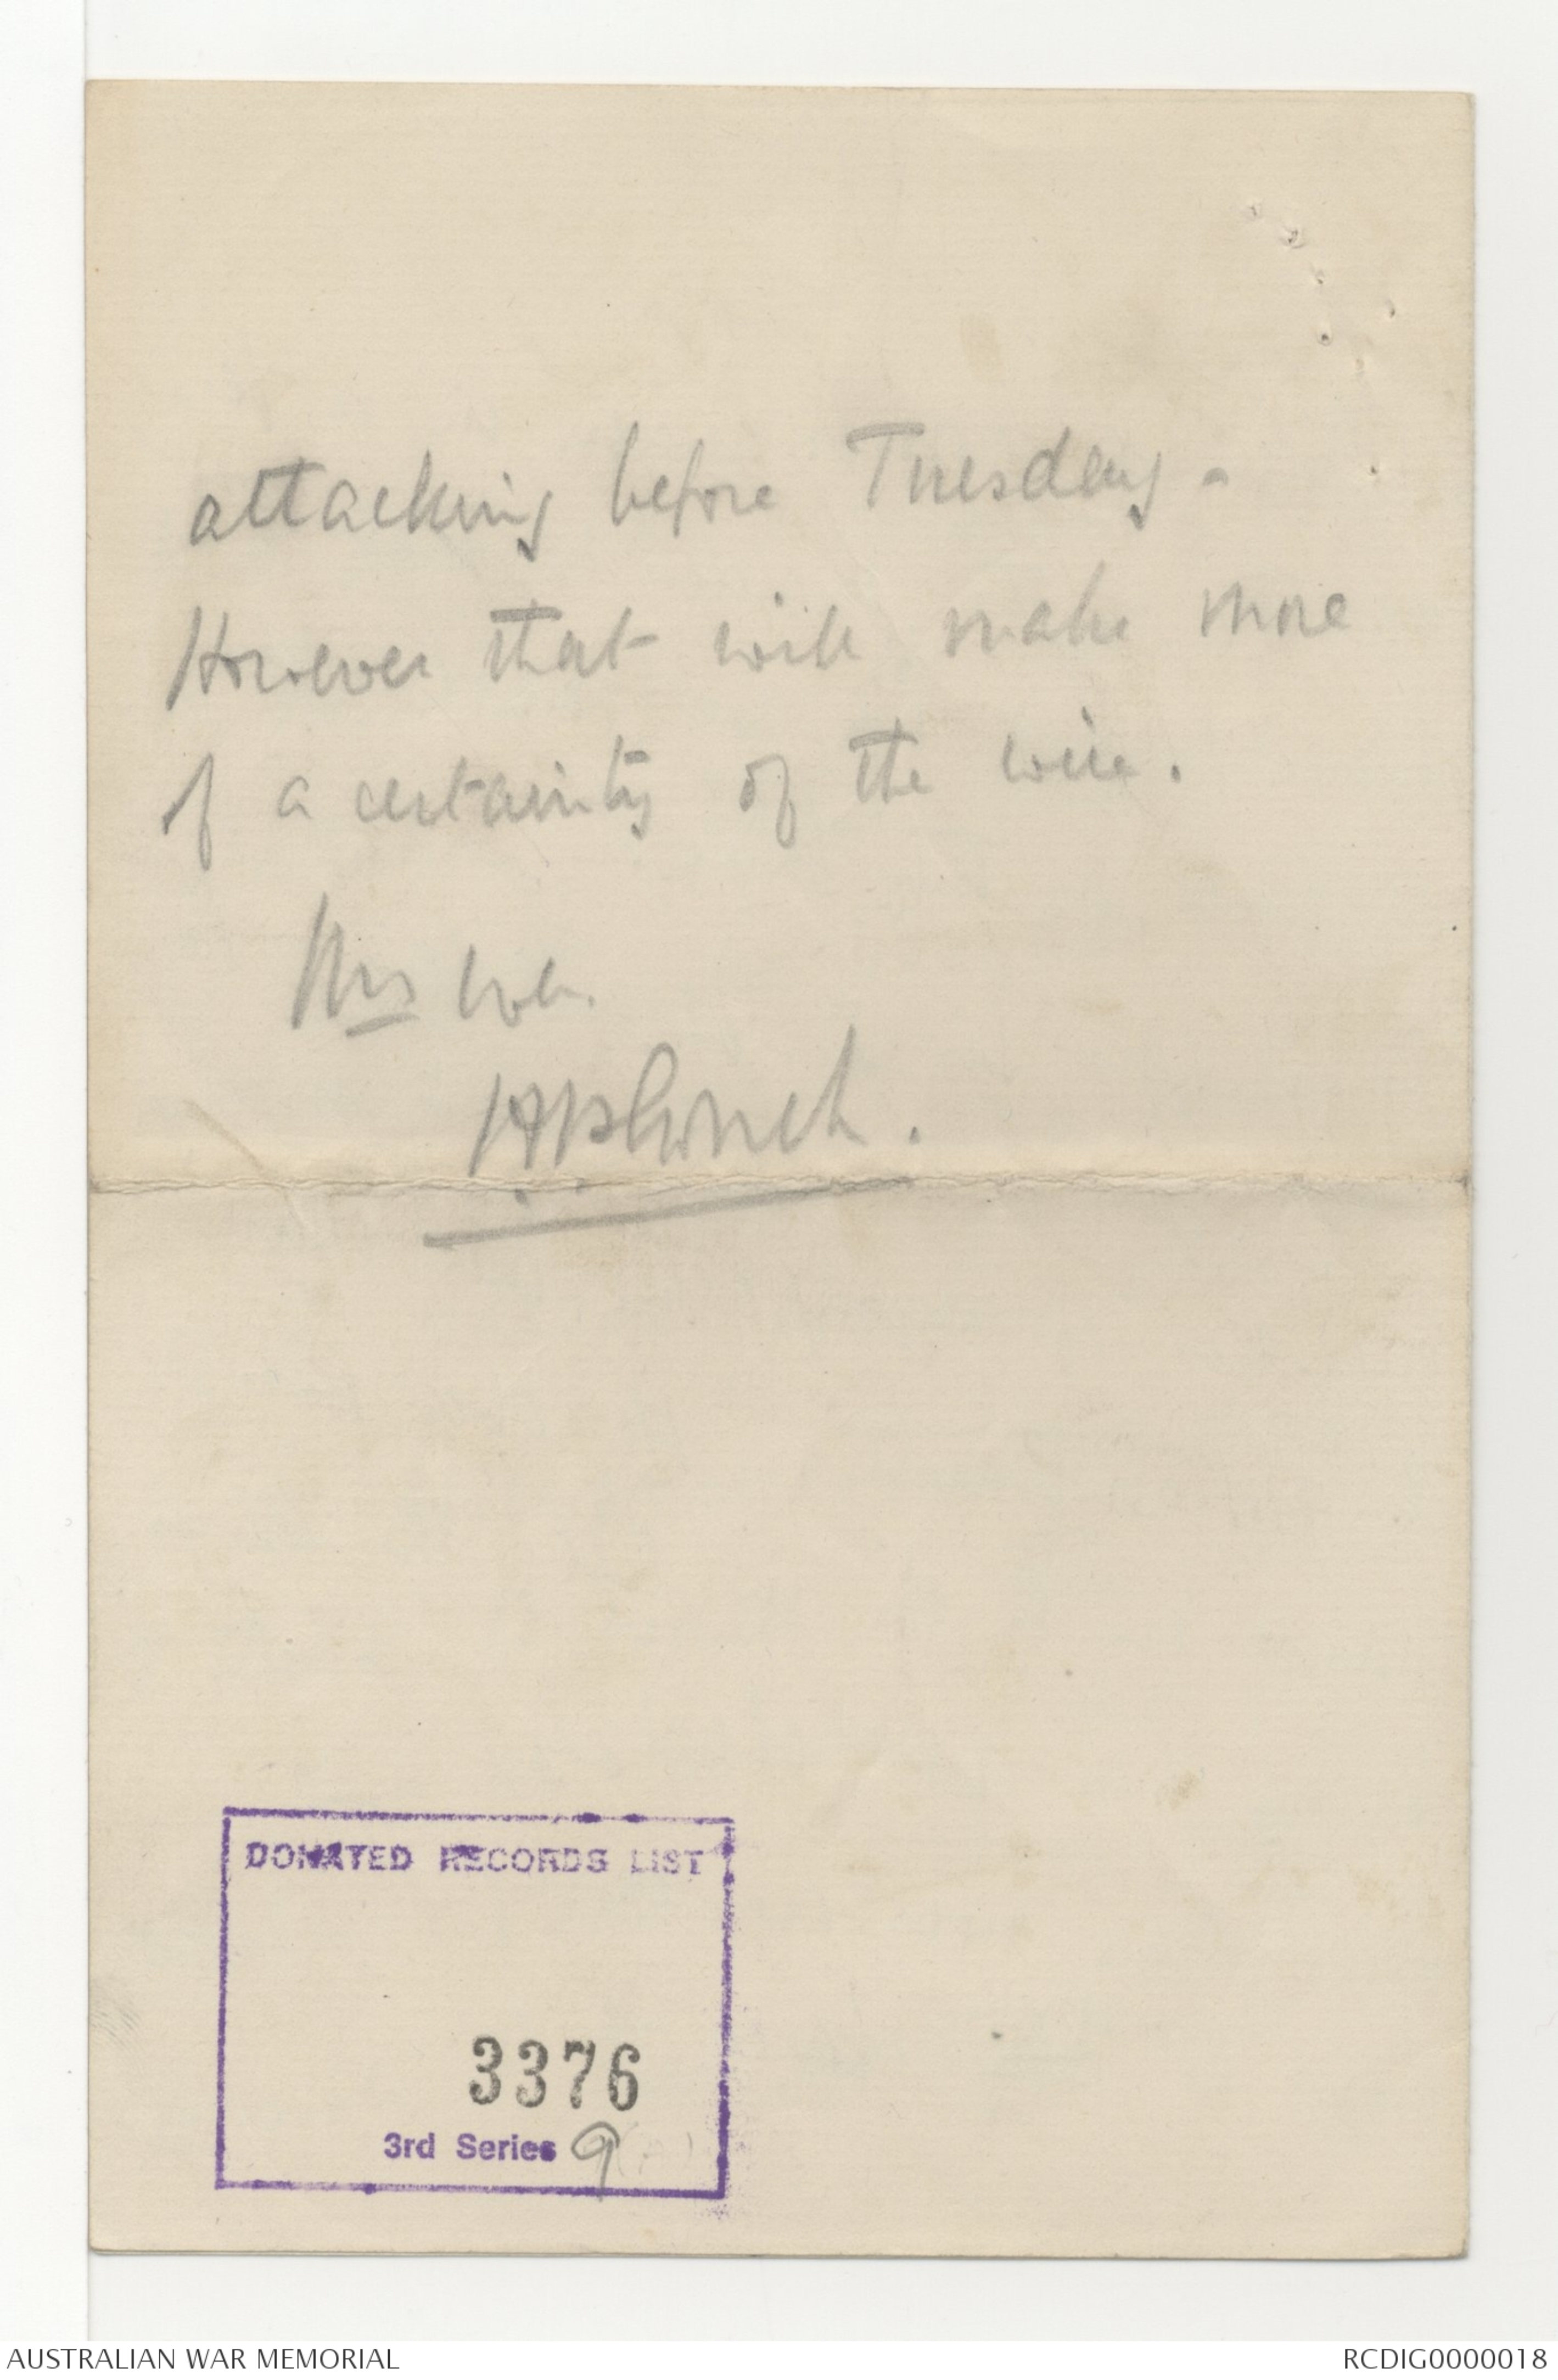 attacking before Tuesday.
However that will make more
of a certainty of the wire.
Yrs
DONATED RECORDS LIST
3376
3rd Series 9(A)
AUSTRALIAN WAR MEMORIAL
RCDIG0000018